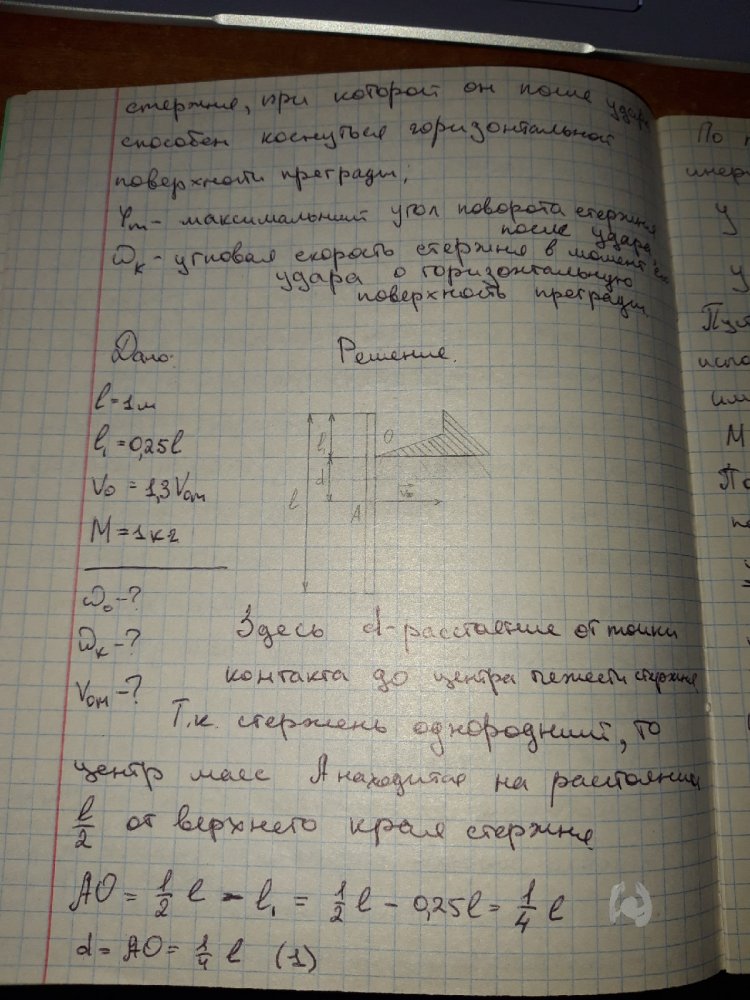 стержня, при которой он после удара
способен коснуться горизонтальной
поверхности преграды;
φm - максимальный угол поворота стержня
после удара;
ωк - угловая скорость стержня в момент его
удара о горизонтальную
поверхность преграды.
Дано:
Решение.
l = 1 м
l₁ = 0,25l
v₀ = 1,3 v₀m
M = 1 кг
ω₀ - ?
ωк - ?
v₀m - ?
l
l₁
d
O
A
v₀
Здесь d - расстояние от точки
контакта до центра тяжести стержня
Т.к. стержень однородный, то
центр масс A находится на расстоянии
l/2 от верхнего края стержня.
AO = 1/2 l - l₁ = 1/2 l - 0,25l = 1/4 l
d = AO = 1/4 l (1)
По
у
у
M
=